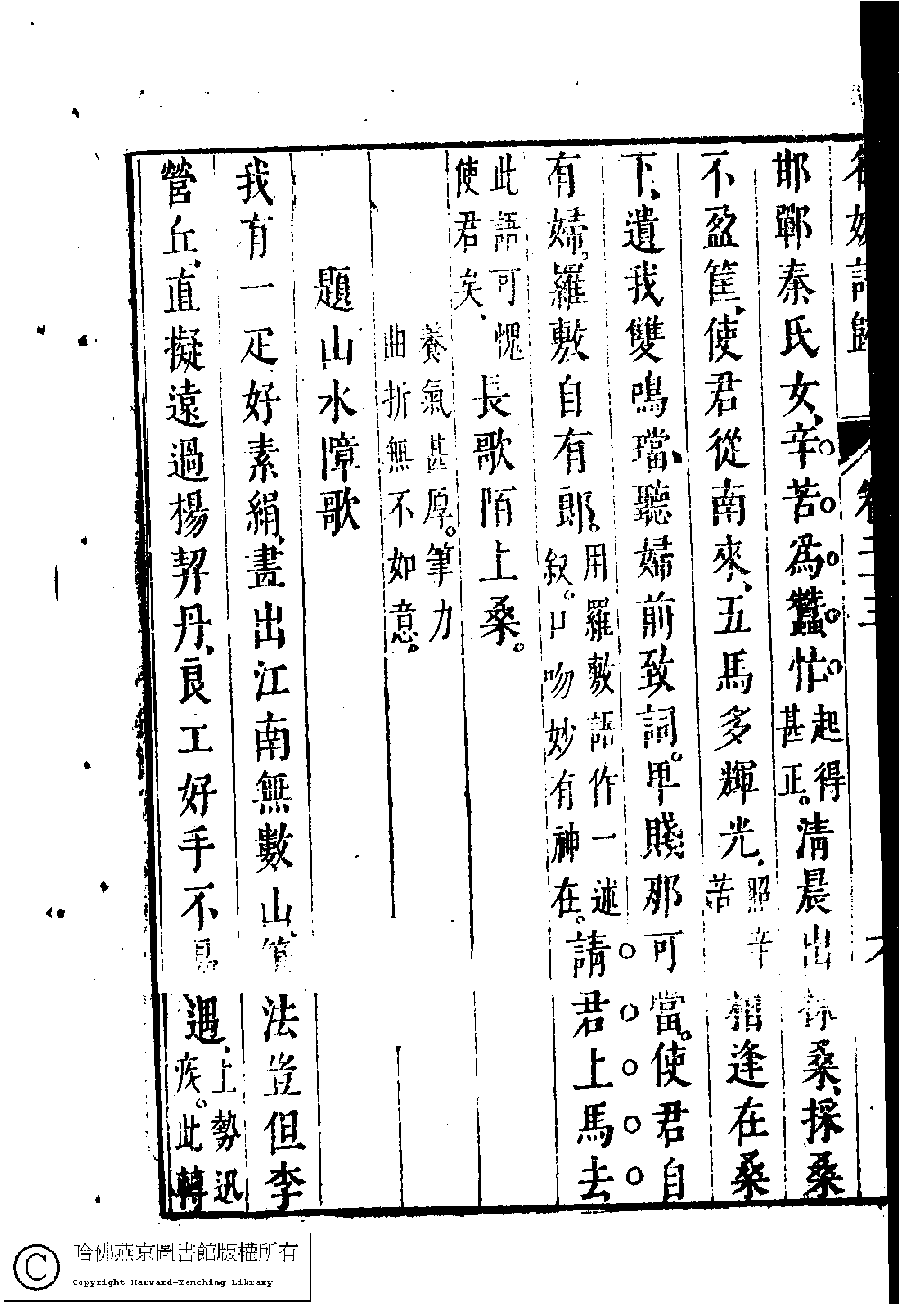 名媛詩歸 卷
邯鄲秦氏女、辛苦為蠶忙起得甚正。清晨出採桑、採桑
不盈筐、使君從南來、五馬多輝光、照辛苦相逢在桑
下、遺我雙鳴璫、聽婦前致詞。卑賤那可當。使君自
有婦、羅敷自有郎。用羅敷語作一述叙。口吻妙有神在。請君上馬去
此語可愧使君矣、長歌陌上桑。
養氣甚厚。筆力曲折無不如意。
題山水障歌
我有一疋好素絹、畫出江南無數山、筆法豈但李
營丘、直擬遠過楊契丹、良工好手不易遇、上勢迅疾。此轉
哈佛燕京圖書館版權所有
Copyright Harvard-Yenching Library